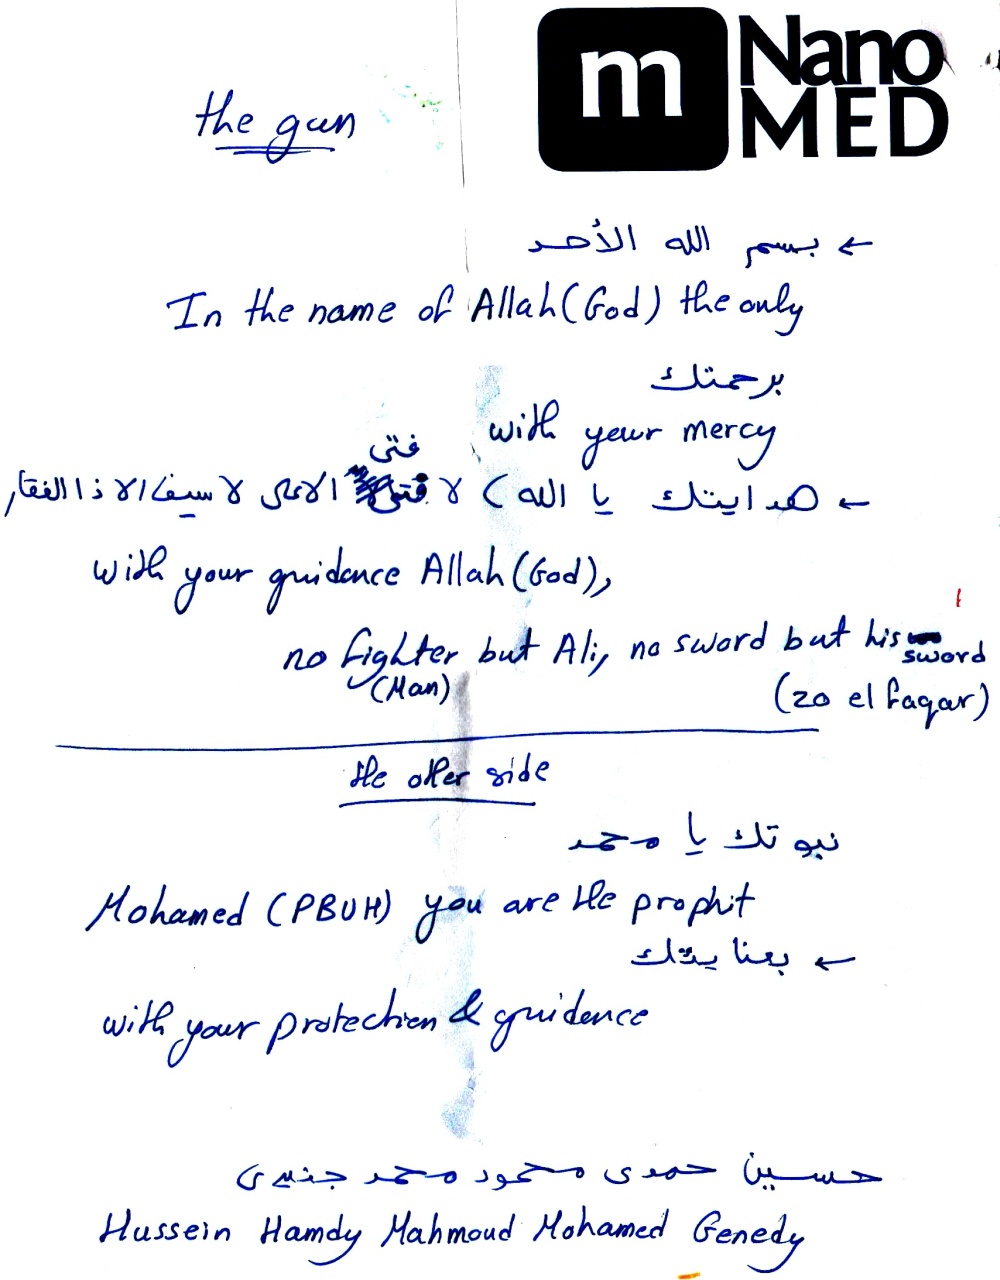 the gun
m Nano
MED
← بسم الله الأحد
In the name of Allah(God) the only
برحمتك
with your mercy
فتى
← هدايتك يا الله) لا الا على لا سيفا الا ذا الفقار
with your guidence Allah(God),
no fighter but Ali, no sword but his sword
(Man) (zo el faqar)
the other side
نبوتك يا محمد
Mohamed (PBUH) you are the prophit
← بعنايتك
with your protection & guidence
حسين حمدى محمود محمد جنيدى
Hussein Hamdy Mahmoud Mohamed Genedy